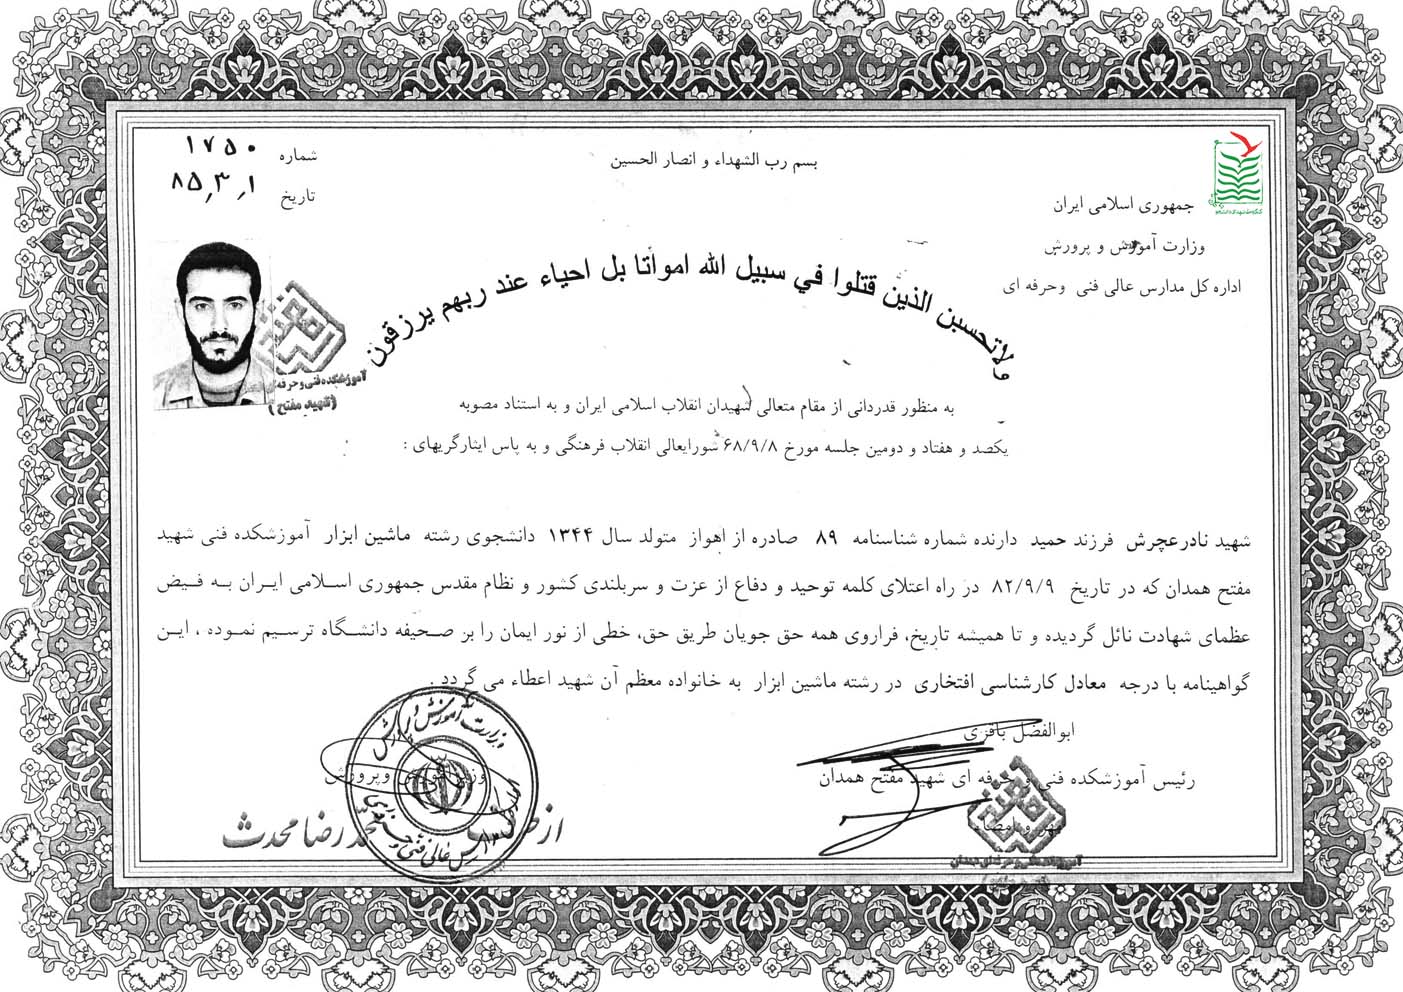 بسم رب الشهداء و انصار الحسین
جمهوری اسلامی ایران
وزارت آموزش و پرورش
اداره کل مدارس عالی فنی وحرفه ای
شماره ۱۷۵۰
تاریخ ۸۵٫۳٫۱
ولاتحسبن الذین قتلوا في سبیل الله امواتا بل احیاء عند ربهم یرزقون
آموزشکده فنی و حرفه
(شهید مفتح)
به منظور قدردانی از مقام متعالی شهیدان انقلاب اسلامی ایران و به استناد مصوبه
یکصد و هفتاد و دومین جلسه مورخ ۶۸/۹/۸ شورایعالی انقلاب فرهنگی و به پاس ایثارگریهای :
شهید نادرعچرش فرزند حمید دارنده شماره شناسنامه ۸۹ صادره از اهواز متولد سال ۱۳۴۴ دانشجوی رشته ماشین ابزار آموزشکده فنی شهید
مفتح همدان که در تاریخ ۸۲/۹/۹ در راه اعتلای کلمه توحید و دفاع از عزت و سربلندی کشور و نظام مقدس جمهوری اسلامی ایران به فیض
عظمای شهادت نائل گردیده و تا همیشه تاریخ، فراروی همه حق جویان طریق حق، خطی از نور ایمان را بر صحیفه دانشگاه ترسیم نموده ، این
گواهینامه با درجه معادل کارشناسی افتخاری در رشته ماشین ابزار به خانواده معظم آن شهید اعطاء می گردد .
ابوالفضل باقری
رئیس آموزشکده فنی و حرفه ای شهید مفتح همدان
مهر و امضاء
وزیر آموزش وپرورش
وزارت آموزش و پرورش
از
رضا محدث